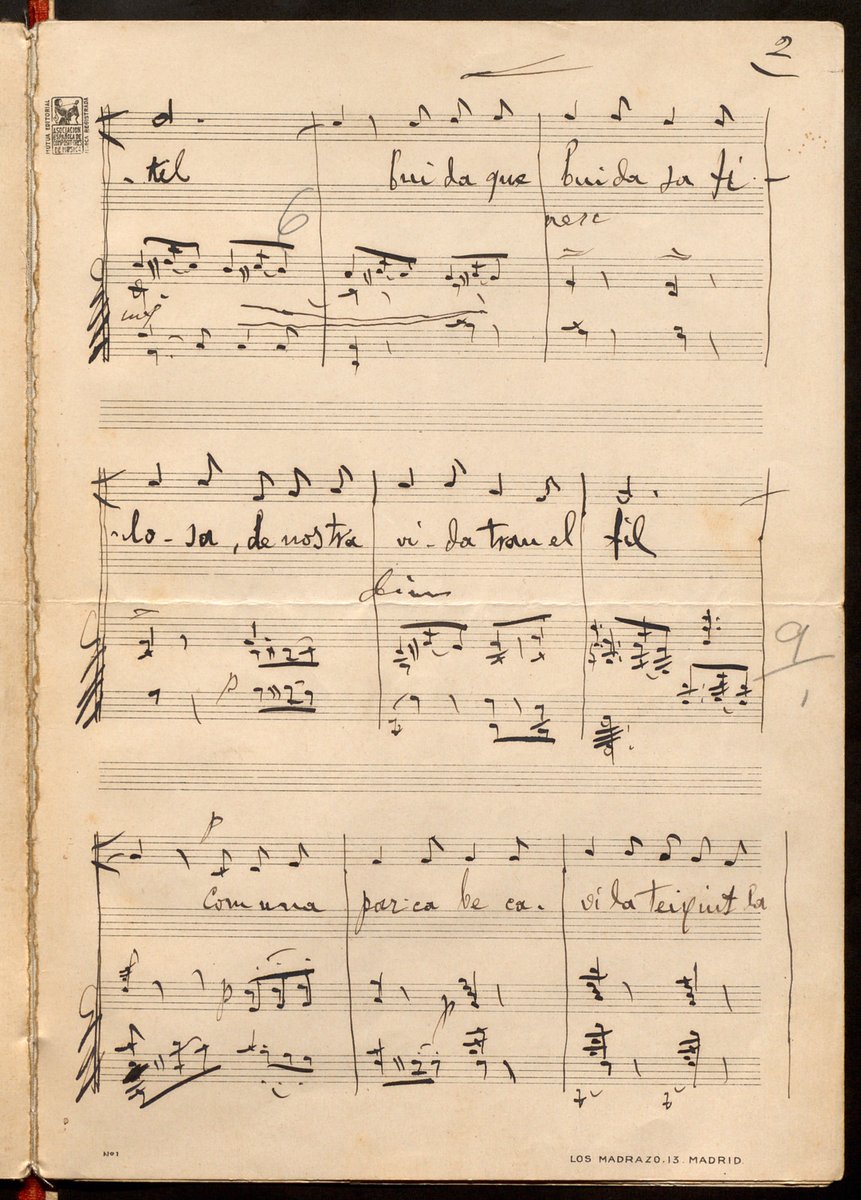 2
MUTUA EDITORIAL
ASOCIACION
ESPAÑOLA DE
COMPOSITORES
DE MÚSICA
MARCA REGISTRADA
- tel buida que buida sa fi -
6
- lo - sa, de nostra vi - da trau el fil
dim
p
9
p
com una par:ca be ca - vi la teixint la
p
p
No. 1
LOS MADRAZO.13. MADRID.